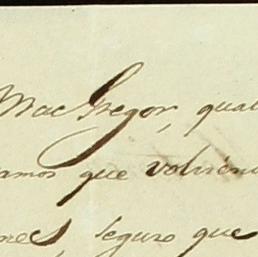 MacGregor, qua
amos que volviend
nes, seguro que